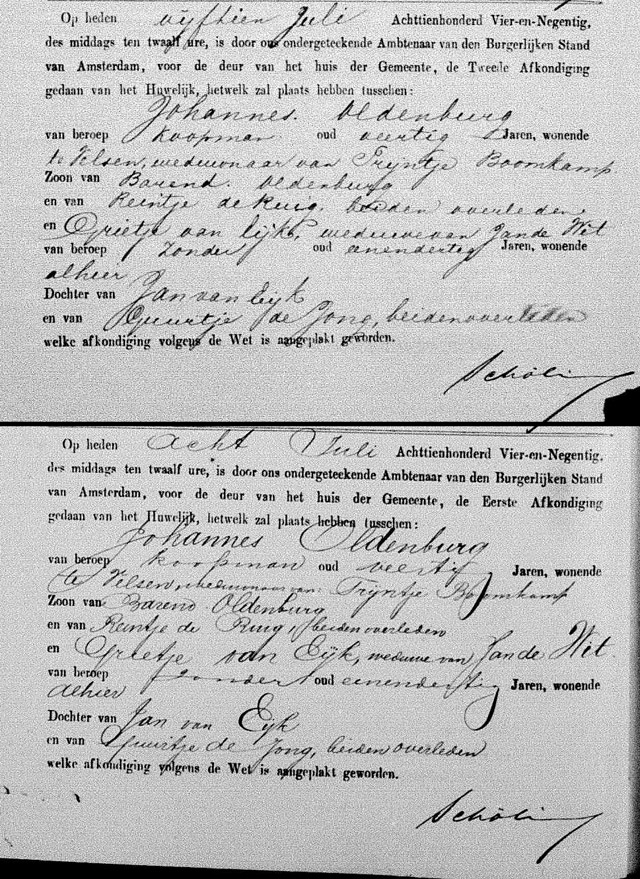 Op heden vijftien Juli Achttienhonderd Vier-en-Negentig,
des middags ten twaalf ure, is door ons ondergeteekende Ambtenaar van den Burgerlijken Stand
van Amsterdam, voor de deur van het huis der Gemeente, de Tweede Afkondiging
gedaan van het Huwelijk, hetwelk zal plaats hebben tusschen:
Johannes. Oldenburg
van beroep Koopman oud veertig Jaren, wonende
te Velsen, weduwnaar van Trijntje Boomkamp
Zoon van Barend. Oldenburg
en van Reintje de Ruig, beiden overleden,
en Grietje van Eijk, weduwe van Jan de Wit
van beroep Zonder oud eenendertig Jaren, wonende
alhier
Dochter van Jan van Eijk
en van Guurtje de Jong, beiden overleden
welke afkondiging volgens de Wet is aangeplakt geworden.
Op heden Acht Juli Achttienhonderd Vier-en-Negentig,
des middags ten twaalf ure, is door ons ondergeteekende Ambtenaar van den Burgerlijken Stand
van Amsterdam, voor de deur van het huis der Gemeente, de Eerste Afkondiging
gedaan van het Huwelijk, hetwelk zal plaats hebben tusschen:
Johannes Oldenburg
van beroep Koopman oud veertig Jaren, wonende
te Velsen, weduwnaar van Trijntje Boomkamp
Zoon van Barend Oldenburg
en van Reintje de Ruig, beiden overleden
en Grietje van Eijk, weduwe van Jan de Wit
van beroep zonder oud eenendertig Jaren, wonende
alhier
Dochter van Jan van Eijk
en van Guurtje de Jong, beiden overleden
welke afkondiging volgens de Wet is aangeplakt geworden.